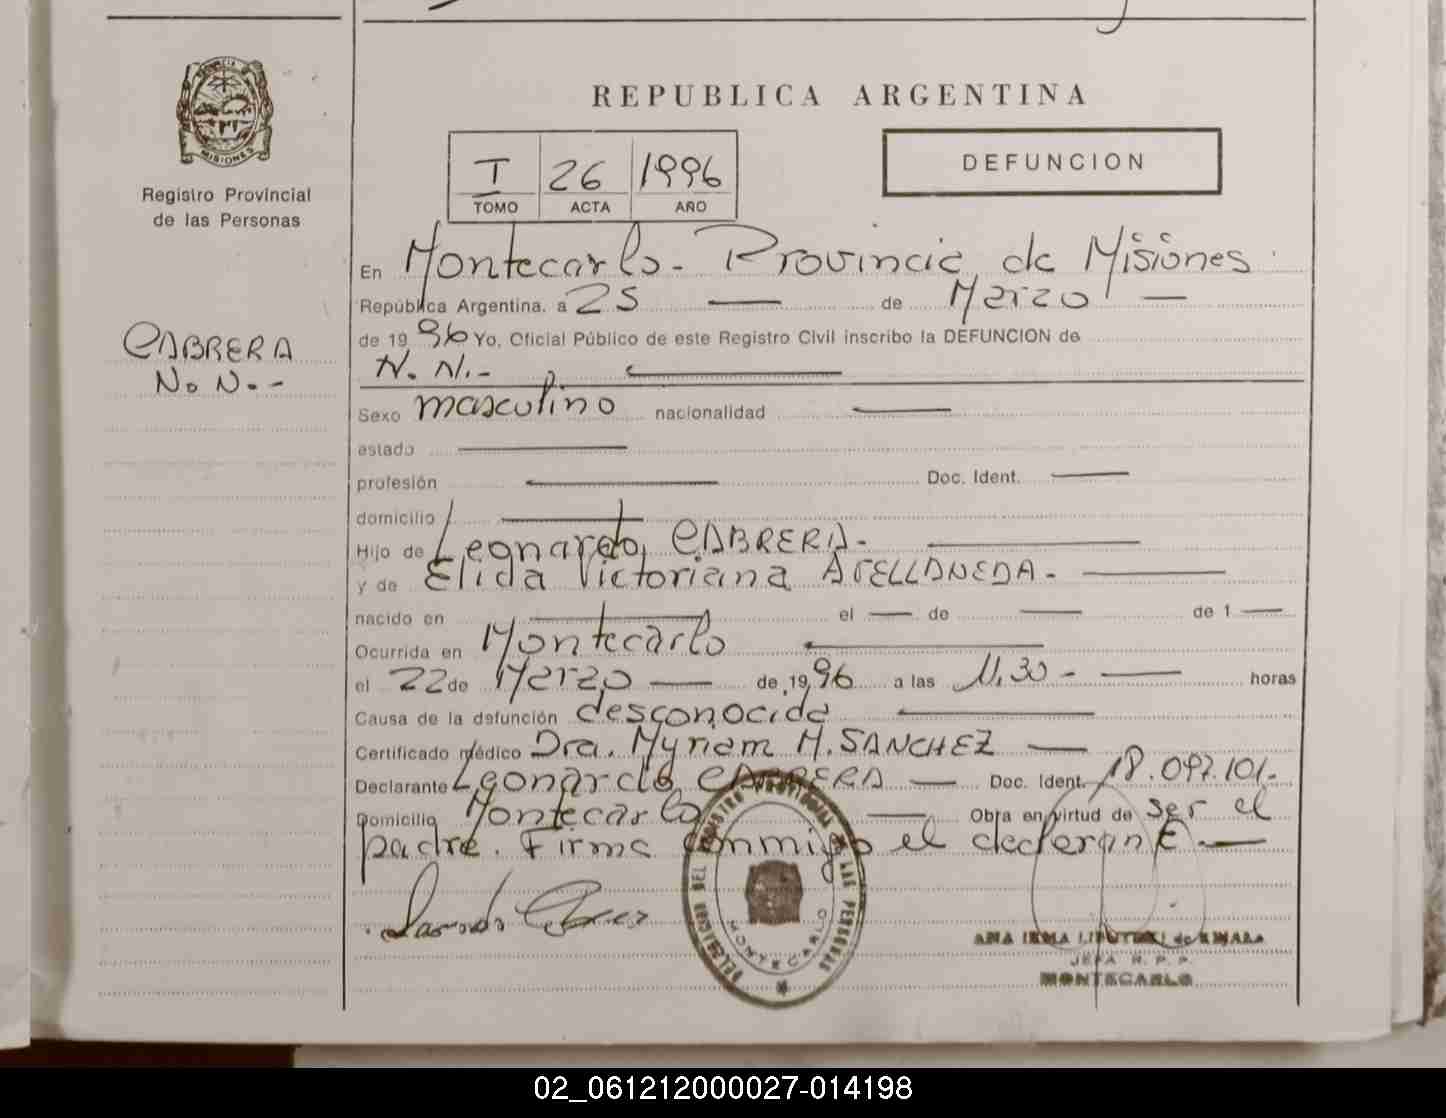 REPUBLICA ARGENTINA
PROVINCIA DE
MISIONES
Registro Provincial
de las Personas
I 26 1996
TOMO ACTA AÑO
DEFUNCION
CABRERA
N. N.-
En Montecarlo- Provincia de Misiones
República Argentina. a 25 de Marzo
de 19 96 Yo, Oficial Público de este Registro Civil inscribo la DEFUNCION de
N. N.-
Sexo masculino nacionalidad
estado
profesión Doc. Ident.
domicilio
Hijo de Leonardo CABRERA.
y de Elida Victoriana AVELLANEDA.
nacido en el de de 1
Ocurrida en Montecarlo
el 22 de Marzo de 19 96 a las 11.30- horas
Causa de la defunción desconocida
Certificado médico Dra. Myriam M. SANCHEZ
Declarante Leonardo CABRERA Doc. Ident. 18.097.101.
Domicilio Montecarlo Obra en virtud de ser el
padre. Firma conmigo el declarante
DELEGACION DEL REGISTRO PROVINCIAL DE LAS PERSONAS
MONTECARLO
ANA IRMA
JEFA R. P. P.
MONTECARLO
02_061212000027-014198